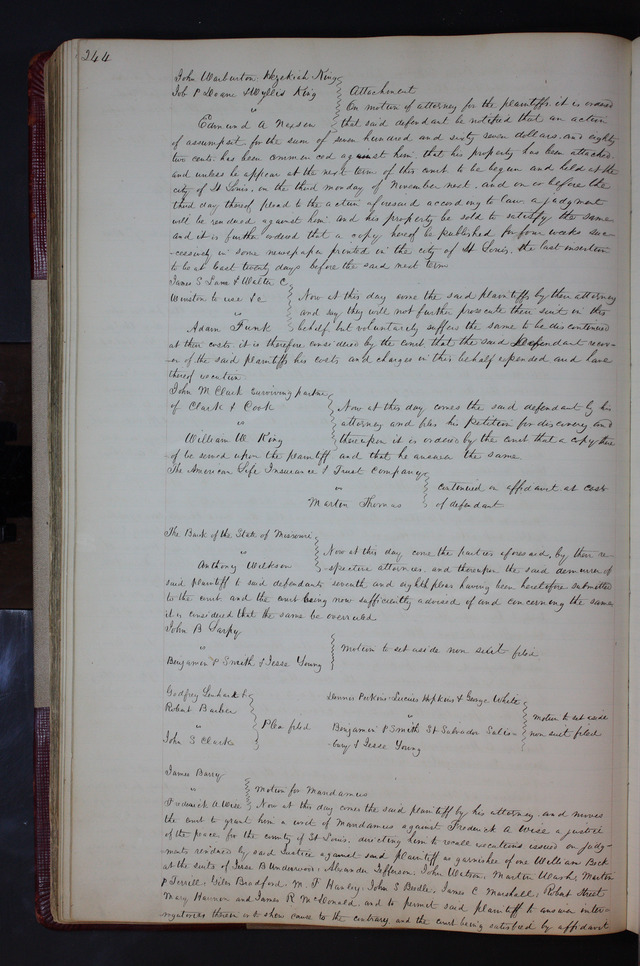 244
John Warburton Hezekiah King
Job P Doane & Wyllis King
"
Edmund A Nexsen
Attachment
On motion of attorney for the plaintiffs it is ordered
that said defendant be notified that an action
of assumpsit for the sum of seven hundred and sixty seven dollars and eighty
two cents has been commenced against him, that his property has been attached
and unless he appear at the next term of this court to be begun and held at the
city of St Louis, on the third monday of November next, and on or before the
third day thereof plead to the action aforesaid according to law a judgment
will be rendered against him and his property be sold to satisfy the same
and it is further ordered that a copy hereof be published for four weeks suc-
-cessively in some newspaper printed in the city of St Louis, the last insertion
to be at least twenty days before the said next term
James S Lane & Walter C
Winston to use &c
"
Adam Funk
Now at this day come the said plaintiffs by their attorney
and say they will not further prosecute their suit in this
behalf but voluntarily suffers the same to be discontinued
at their costs, it is therefore considered by the court that the said Defendant recov-
-er of the said plaintiffs his costs and charges in this behalf expended and have
thereof execution
John M Clark surviving partner
of Clark & Cook
"
William W King
Now at this day comes the said defendant by his
attorney and files his Petition for discovery and
thereupon it is ordered by the court that a copy there
of be served upon the plaintiff and that he answer the same
The American Life Insurance & Trust Company
"
Martin Thomas
continued on affidavit at cost
of defendant
The Bank of the State of Missouri
"
Anthony Wilkson
Now at this day come the parties aforesaid, by their re-
-spective attornies, and thereupon the said demurrer of
said plaintiff to said defendants seventh and eighth pleas having been heretofore submitted
to the court, and the court being now sufficiently advised of and concerning the same
it is considered that the same be overruled
John B Sarpy
"
Benjamin P Smith & Jesse Young
motion to set aside non suit filed
Godfrey
Robert Barber
"
John S Clark
Plea filed
Dennis Perkins Lucius Hopkins & George White
"
Benjamin P Smith St Salvador Salis-
-bury & Jesse Young
motion to set aside
non suit filed
James Barry
"
Frederick A Wise
motion for Mandamus
Now at this day comes the said plaintiff by his attorney, and moves
the court to grant him a writ of Mandamus against Frederick A Wise a justice
of the peace for the county of St Louis, directing him to recall executions issued on judg-
-ments rendered by said Justice against said plaintiff as garnishee of one William Beck
at the suits of Jesse B Underwood, Alexander Jefferson, John Watson, Martin Walsh, Marton
P Ferrill, Giles Bradford, M. F Hanley, John S Beedle, James C Marshall, Robert
Mary Hannon and James R McDonald, and to permit said plaintiff to answer inter-
-rogatories therein or to shew cause to the contrary, and the court being satisfied by affidavit